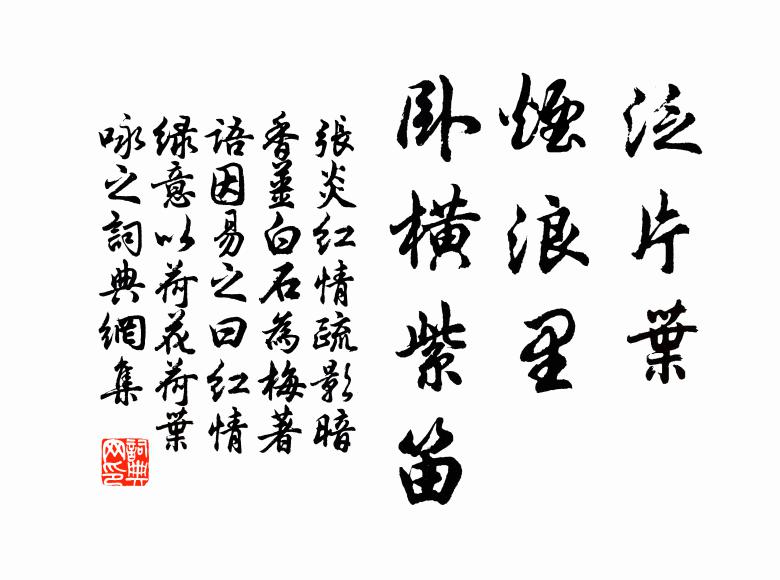 泛片葉
煙浪里
卧橫紫笛
張炎紅情疏影暗
香薑白石為梅著
語因易之曰紅情
绿意以荷花荷葉
咏之詞典網集
詞典網印